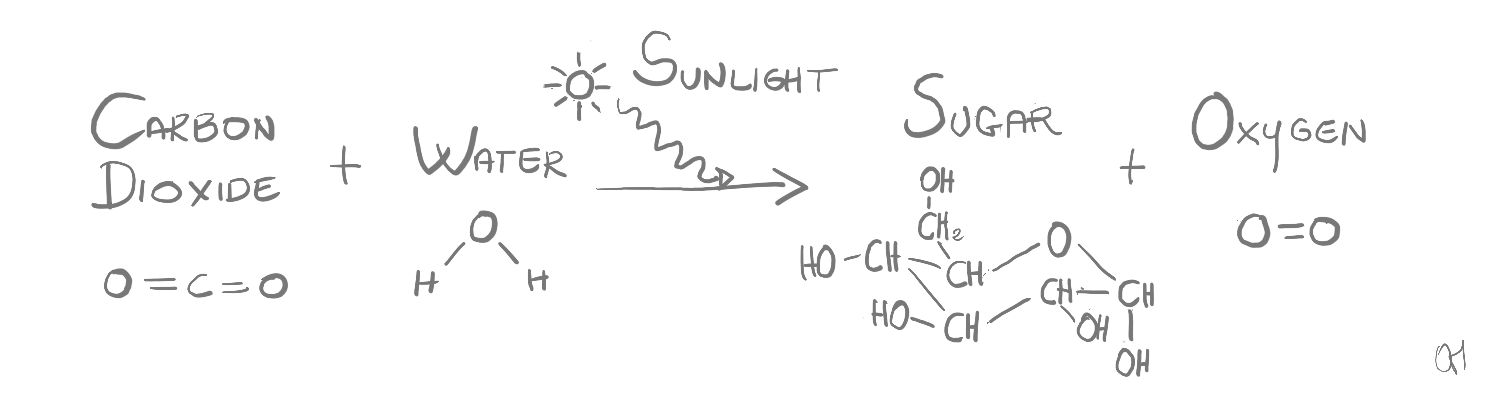 CARBON
DIOXIDE
+
WATER
SUNLIGHT
SUGAR
+
OXYGEN
O=C=O
O
H H
OH
CH2
HO-CH
CH
O
CH-CH
HO-CH
OH
OH
O=O